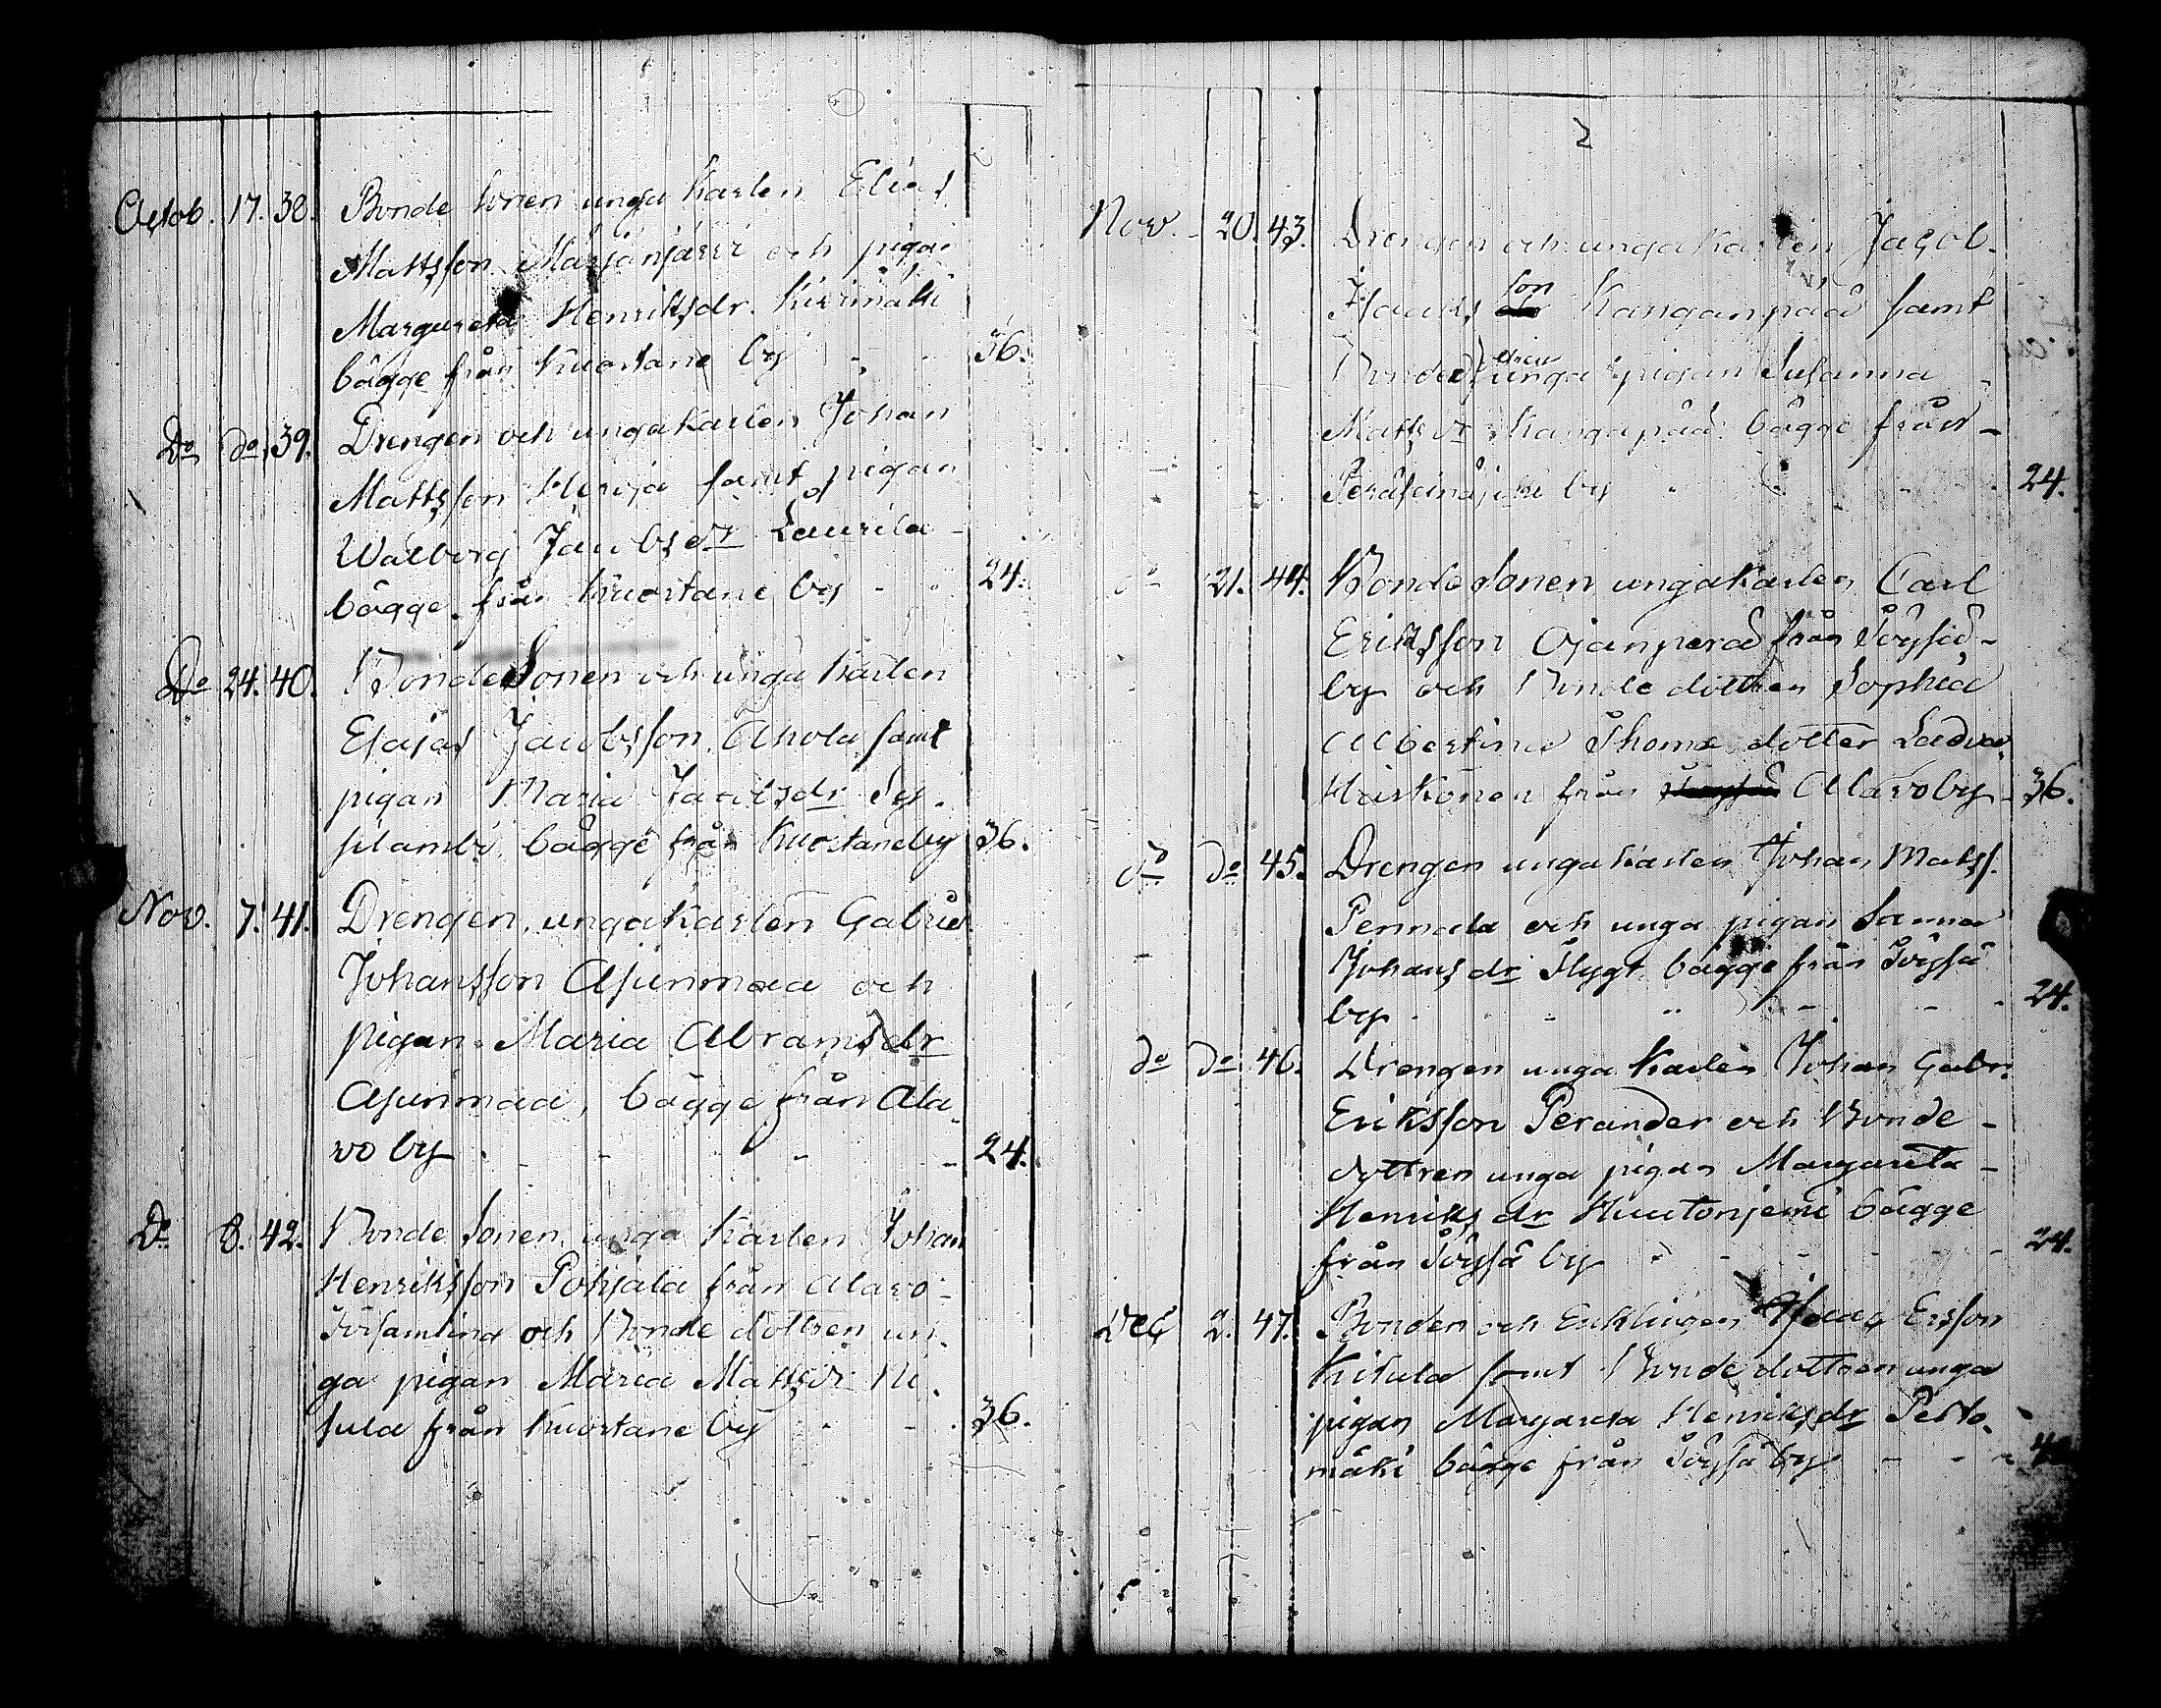 Octob. 17. 38. Bonde Sonen unga Karlen Elias
Mattsson Marjanjärvi och pigan
Margareta Henriksdr. Kivimäki
bägge från Kuortane by - - 36.
Do do 39. Drengen och ungakarlen Johan
Mattsson samt pigan
Walborg Jacobsdr Laurila -
bägge från Kuortane by - - 24.
Do 24. 40. BondeSonen och unga Karlen
Esajas Jacobsson Ahola samt
pigan Maria Jacobsdr Sy-
silambi bägge från Kuortaneby 36.
Nov. 7. 41. Drengen ungakarlen Gabriel
Johansson Asunmaa och
pigan Maria Abramsdr
Asunmaa, bägge från Ala-
vo by - - - - 24.
Do 8. 42. Bonde Sonen unga Karlen Johan
Henriksson Pohjala från Alavo-
Församling och Bonde dottren un-
ga pigan Maria Mattsdr Ni-
sula från Kuortane by - - 36.
2
Nov. - 20. 43. Drengen och ungakarlen Jacob
Isaacs son Kanganpää samt
Bonde dren unga pigan Susanna
Matsdr Kangapää bägge från -
Peräseinäjoki by - - - 24.
do 21. 44. Bonde Sonen ungakarlen Carl
Eriksson Ojanperä från Töysä-
by och Bonde dottren Sophia
Albertina Thomæ dotter Ladva
Härkönen från Alavo by - 36.
do do 45. Drengen unga karlen Johan Matss.
Pennala och unga pigan Sanna
Johansdr Flygt bägge från Töysä
by - - - - - - 24.
do do 46. Drengen unga Karlen Johan Gabr.
Eriksson Perander och Bonde -
dottren unga pigan Margareta -
Henriksdr bägge
från Töysä by - - - - - 24.
Dec 2. 47. Bonden och Enklingen Isaac Ersson
Kitula samt Bonde dottren unga
pigan Margareta Henriksdr Perto-
mäki bägge från Töysä by - -